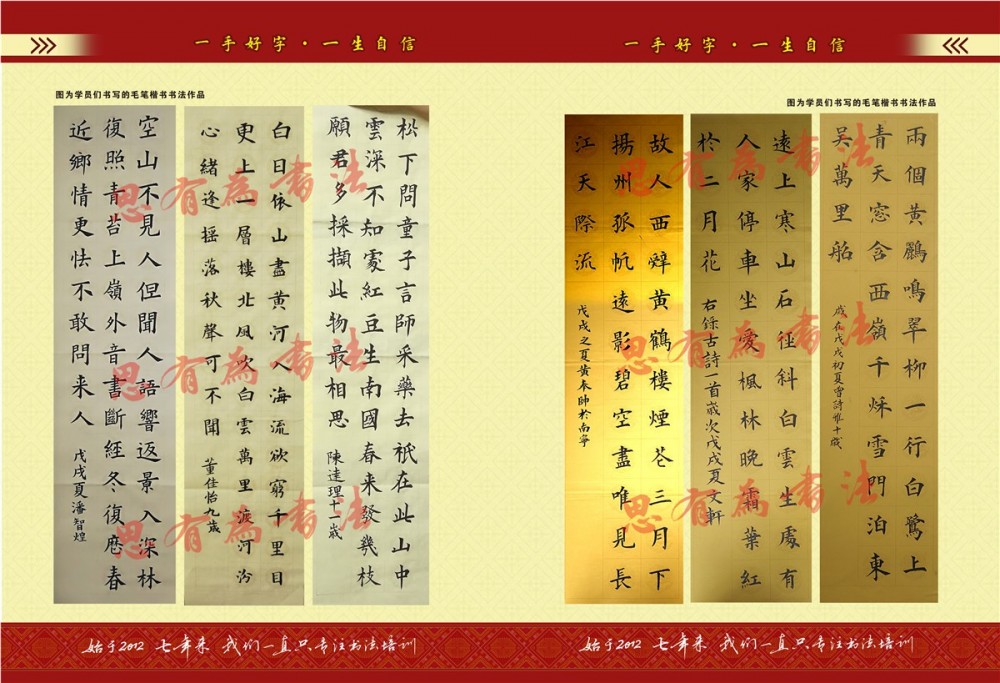 一手好字·一生自信
图为学员们书写的毛笔楷书书法作品
空山不見人但聞人語響返景入深林
復照青苔上嶺外音書斷經冬復歷春
近鄉情更怯不敢問来人
戊戌夏潘智煌
白日依山盡黄河入海流欲窮千里目
更上一層樓北風吹白雲萬里渡河汾
心緒逢摇落秋聲可不聞
董仕怡九歲
松下問童子言師采藥去祇在此山中
雲深不知處紅豆生南國春来發幾枝
願君多採擷此物最相思
陳達理十一歲
思有為書法
思有為書法
思有為書法
始于2012 七年来 我们一直只专注书法培训
一手好字·一生自信
图为学员们书写的毛笔楷书书法作品
故人西辤黄鶴樓煙花三月下
揚州孤帆遠影碧空盡唯見長
江天際流
戊戌之夏黄奏帥於南寧
遠上寒山石徑斜白雲生處有
人家停車坐愛楓林晚霜葉紅
於二月花
右録古詩一首歲次戊戌夏文軒
兩個黄鸝鳴翠柳一行白鷺上
青天窓含西嶺千秌雪門泊東
吴萬里船
歲在戊戌初夏曾詩惟十歲
思有為書法
思有為書法
思有為書法
始于2012 七年来 我们一直只专注书法培训